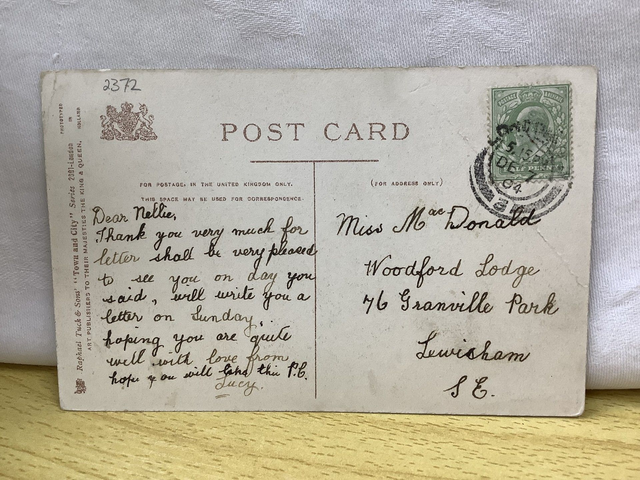 2372
POST CARD
FOR POSTAGE, IN THE UNITED KINGDOM ONLY.
THIS SPACE MAY BE USED FOR CORRESPONDENCE
(FOR ADDRESS ONLY)
Dear Nellie,
Thank you very much for
letter shall be very pleased
to see you on day you
said, will write you a
letter on Sunday,
hoping you are quite
well with love from
hope you will like this P.C.
Lucy.
Miss Mac Donald
Woodford Lodge
76 Granville Park
Lewisham
S.E.
Raphael Tuck & Sons' "Town and City" Series 2081-London
ART PUBLISHERS TO THEIR MAJESTIES THE KING & QUEEN.
PHOTOTYPED
IN
HOLLAND
DE
04